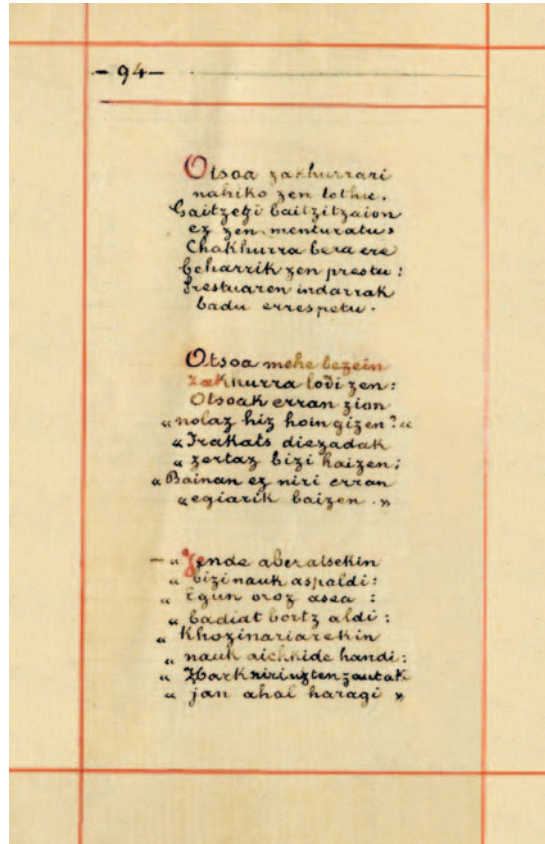 - 94 -
Otsoa zakhurrari
nahiko zen lothu.
Gaitzegi baitzitzaion
ez zen menturatu,
Chakhurra bera ere
beharrik zen prestu:
Prestuaren indarrak
badu errespetu.
Otsoa mehe bezein
zakhurra lodi zen:
Otsoak erran zion
« nolaz hiz hoin gizen? «
« Irakats diezadak
« zertaz bizi haizen;
« Bainan ez niri erran
« egiarik baizen. »
- « Jende aberatsekin
« bizi nauk aspaldi:
« Egun oroz asea :
« badiat bortz aldi:
« Khozinariarekin
« nauk aichkide handi:
« Hark niri uzten zautak
« jan ahal haragi »